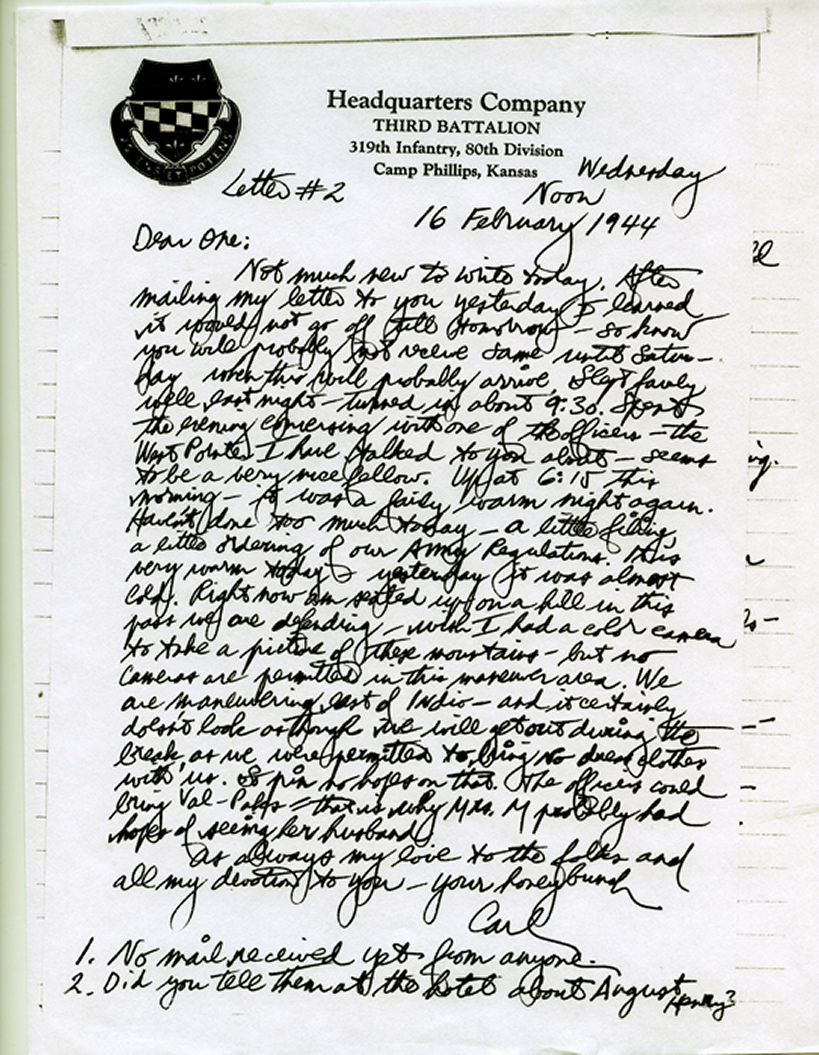 Headquarters Company
THIRD BATTALION
319th Infantry, 80th Division
Camp Phillips, Kansas
Wednesday
Letter #2
Noon
16 February 1944
Dear One:
Not much new to write today. After
mailing my letter to you yesterday I learned
it would not go off till tomorrow – so know
you will probably not receive same until Satur-
day when this will probably arrive. Slept fairly
well last night – turned in about 9:30. Spent
the evening conversing with one of the officers – the
West Pointer I have talked to you about – seems
to be a very nice fellow. Up at 6:15 this
morning – it was a fairly warm night again.
Haven't done too much today – a little filing,
a little ordering of our Army Regulations. It is
very warm today – yesterday it was almost
cold. Right now am seated up on a hill in this
pass we are defending – wish I had a color camera
to take a picture of these mountains – but no
cameras are permitted in this maneuver area. We
are maneuvering east of Indio – and it certainly
doesn't look as though we will get out during the
break, as we were permitted to bring no dress clothes
with us. So pin no hopes on that. The officers could
bring Val-Paks – that is why Mrs. M probably had
hopes of seeing her husband.
As always my love to the folks and
all my devotion to you – your honeybunch
Carl
1. No mail received yet from anyone.
2. Did you tell them at the hotel about August
Henry?